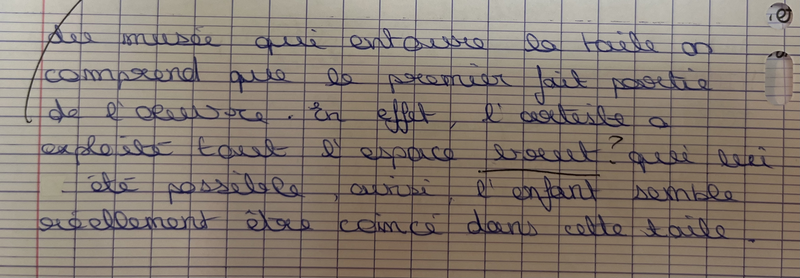 du musée qui entoure la toile on
comprend que le premier fait partie
de l'oeuvre. En effet, l'artiste a
exploité tout l'espace ? qui lui
été possible, ainsi, l'enfant semble
réellement être coincé dans cette toile.